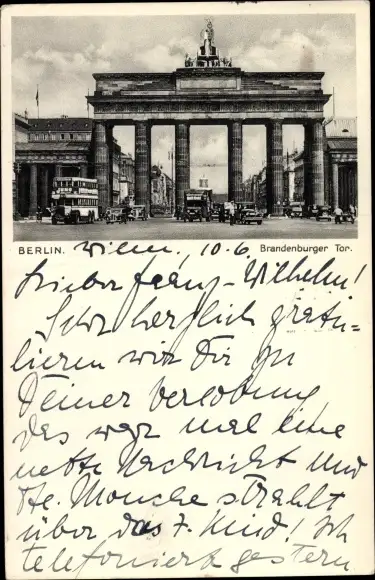 BERLIN.
Brandenburger Tor.
10.6.
Lieber Franz-Wilhelm!
Sehr herzlich gratu=
lieren wir Dir zu
Deiner Verlobung,
das war mal eine
nette Nachricht und
strahlt
über das 7. Kind! Ich
telefonierte gestern